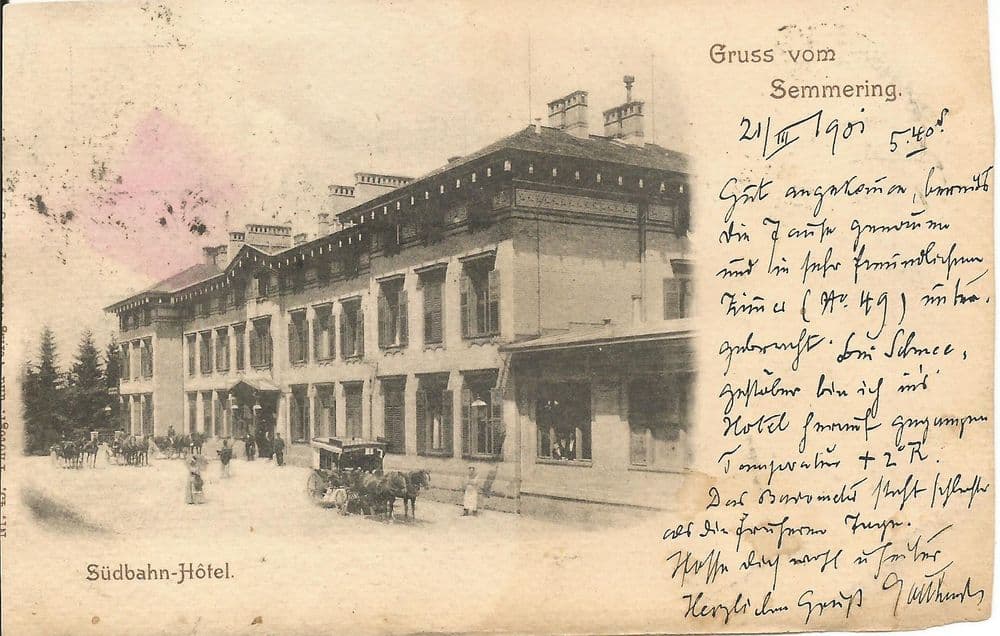 Gruss vom
Semmering.
21/III 1901 5.40
Gut angekommen, bereits
die Jause genommen
und in sehr freundlichem
Zimmer (No. 49) unter-
gebracht. Bei Schnee-
gestöber bin ich ins
Hotel herauf gegangen
Temperatur +2°R.
Das Barometer steht schlechter
als die früheren Tage.
Hoffe dich wohl u heiter
Herzlichen Gruß
Südbahn-Hôtel.